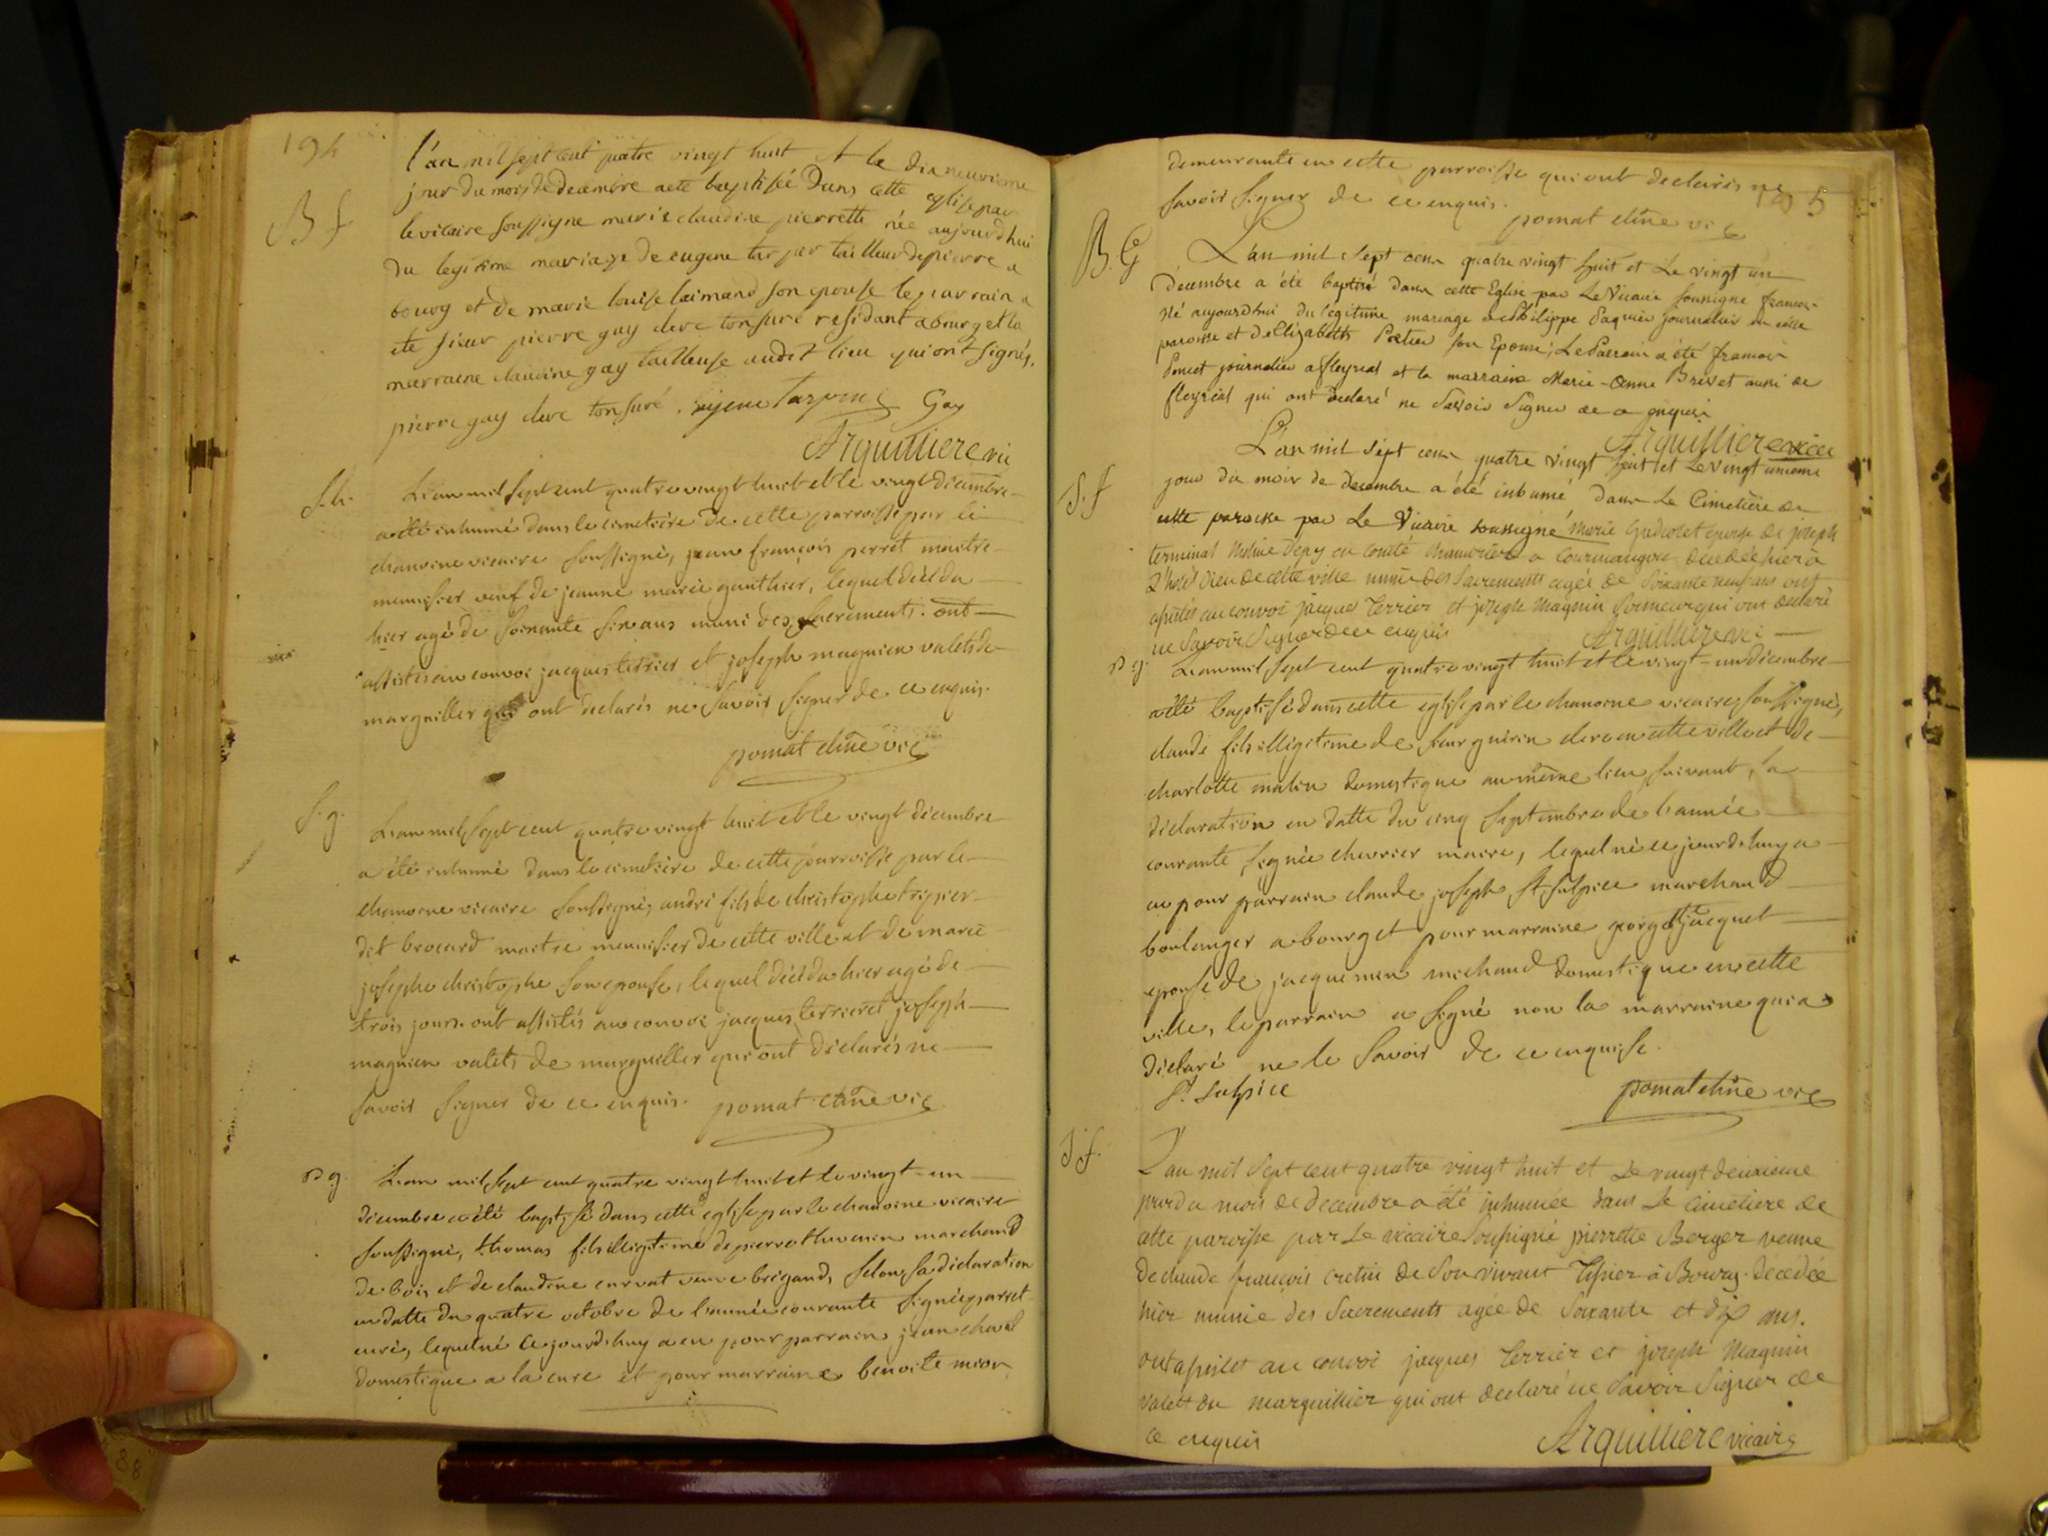 194
B f
l'an mil sept cent quatre vingt huit et le dix neuvieme
jour du mois de decembre a eté baptisée dans cette eglise par
le vicaire soussigné marie claudine pierrette née aujourdhui
du legitime mariage de eugene tarpin tailleur de pierre a
bourg et de marie louise son epouse le parrain a
ete sieur pierre gay clerc tonsuré residant a bourg et la
marraine claudine gay tailleuse audit lieu qui ont signés.
pierre gay clerc tonsuré. Gay
Arquilliere vic
S. h.
L'an mil sept cent quatre vingt huit et le vingt decembre
a été inhumé dans le cimetiere de cette parroisse par le
chanoine vicaire soussigné, jean françois perret maitre
menuisier veuf de jeanne marie gauthier, lequel décéda
hier agé de soixante six ans muni des sacrements. ont
assistés au convoi jacques terrier et joseph magnien valets de
marguiller qui ont declarés ne savoir signer de ce enquis.
pomat chne vic
S. g.
L'an mil sept cent quatre vingt huit et le vingt décembre
a été inhumé dans le cimetiere de cette parroisse par le
chanoine vicaire soussigné, andré fils de christophe tripier
dit brocard maitre menuisier de cette ville et de marie
josephe christophe son epouse, lequel décéda hier agé de
trois jours. ont assistés au convoi jacques terrier et joseph
magnien valets de marguiller qui ont déclarés ne
savoir signer de ce enquis. pomat chne vic
B g.
L'an mil sept cent quatre vingt huit et le vingt-un
decembre a été baptisé dans cette eglise par le chanoine vicaire
soussigné, thomas fils illegitime de pierre thuvenin marchand
de bois et de claudine curvat veuve brigand, selon sa déclaration
en datte du quatre octobre de l'année courante signée parret
curé, lequel né ce jourdhuy a eu pour parrain jean chavel
domestique a la cure et pour marraine benoite mion
195
demeurante en cette parroisse qui ont declarés ne
savoir signer de ce enquis.
pomat chne vic
B. G
L'an mil sept cent quatre vingt huit et Le vingt un
decembre a été baptisé dans cette Eglise par Le Vicaire soussigné françois
né aujourdhui du légitime mariage de philippe Paquier journalier en cette
paroisse et d'Elizabeth son Epouse; Le Parrain a été françois
Poncet journalier a fleyriat et la marraine Marie-Anne Brevet aussi de
fleyriat qui ont declaré ne Savoir Signer de ce enquis
Arquilliere vic
S. f
L'an mil sept cent quatre vingt huit et Le vingt unieme
jour du mois de decembre a été inhumé dans Le Cimetière de
cette paroisse par Le Vicaire soussigné Marie epouse de joseph
terminal decedée hier à
L'hotel Dieu de cette ville munie des Sacrements agée de soixante neuf ans ont
assistés au convoi jacques Terrier et joseph Magnin qui ont declaré
ne Savoir Signer de ce enquis Arquilliere vic
B g.
L'an mil sept cent quatre vingt huit et le vingt-un décembre
a été baptisé dans cette eglise par le chanoine vicaire soussigné,
claude fils illégitime de sieur guérin clerc en cette ville et de
charlotte matin domestique au même lieu suivant sa
déclaration en datte du cinq septembre de l'année
courante signée chevrier maire, lequel né ce jourdhuy a
eu pour parrain claude joseph St. sulpice marchand
boulanger a bourg et pour marraine georgette jacquet
epouse de jacquemin michaud domestique en cette
ville, le parrain a signé non la marraine qui a
déclaré ne le savoir de ce enquise.
St. Sulpice pomat chne vic
S. f.
L'an mil Sept cent quatre vingt huit et Le vingt deuxieme
jour du mois de decembre a été inhumée dans Le Cimetiere de
cette paroisse par Le vicaire Soussigné pierrette Berger veuve
de claude françois cretin de Son vivant Tissier à Bourg. décédée
hier munie des Sacrements agée de Soixante et dix ans.
ont assistés au convoi jacques Terrier et joseph Magnin
valets du marguillier qui ont declaré ne Savoir Signer de
ce enquis Arquilliere vicaire